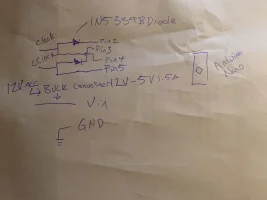 IN5399BDiode
clock
Pin2
Pin3
clock
Pin4
Pin5
12V acc
Buck converter 12V-5V 1.5A
Arduino
Nano
Vin
GND